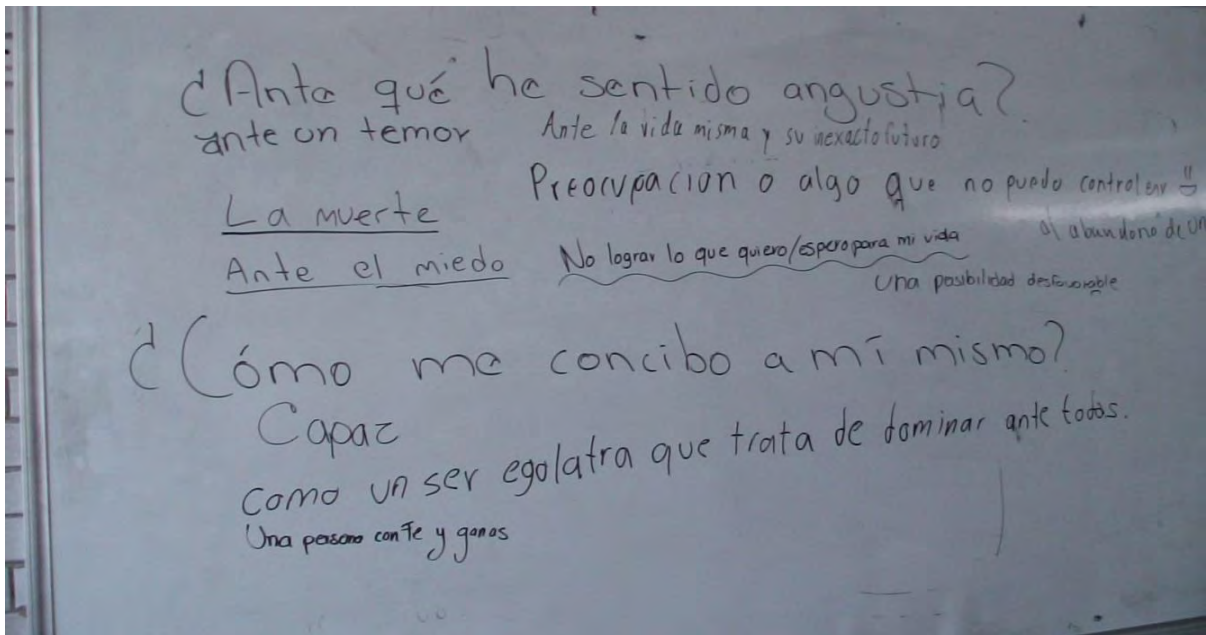 ¿Ante qué he sentido angustia?
ante un temor Ante la vida misma y su inexacto futuro
Preocupación o algo que no puedo controlar
La muerte
al abandono de un
Ante el miedo No lograr lo que quiero/espero para mi vida
Una posibilidad desfavorable
¿Cómo me concibo a mí mismo?
Capaz
Como un ser egolatra que trata de dominar ante todos.
Una persona con Fe y ganas